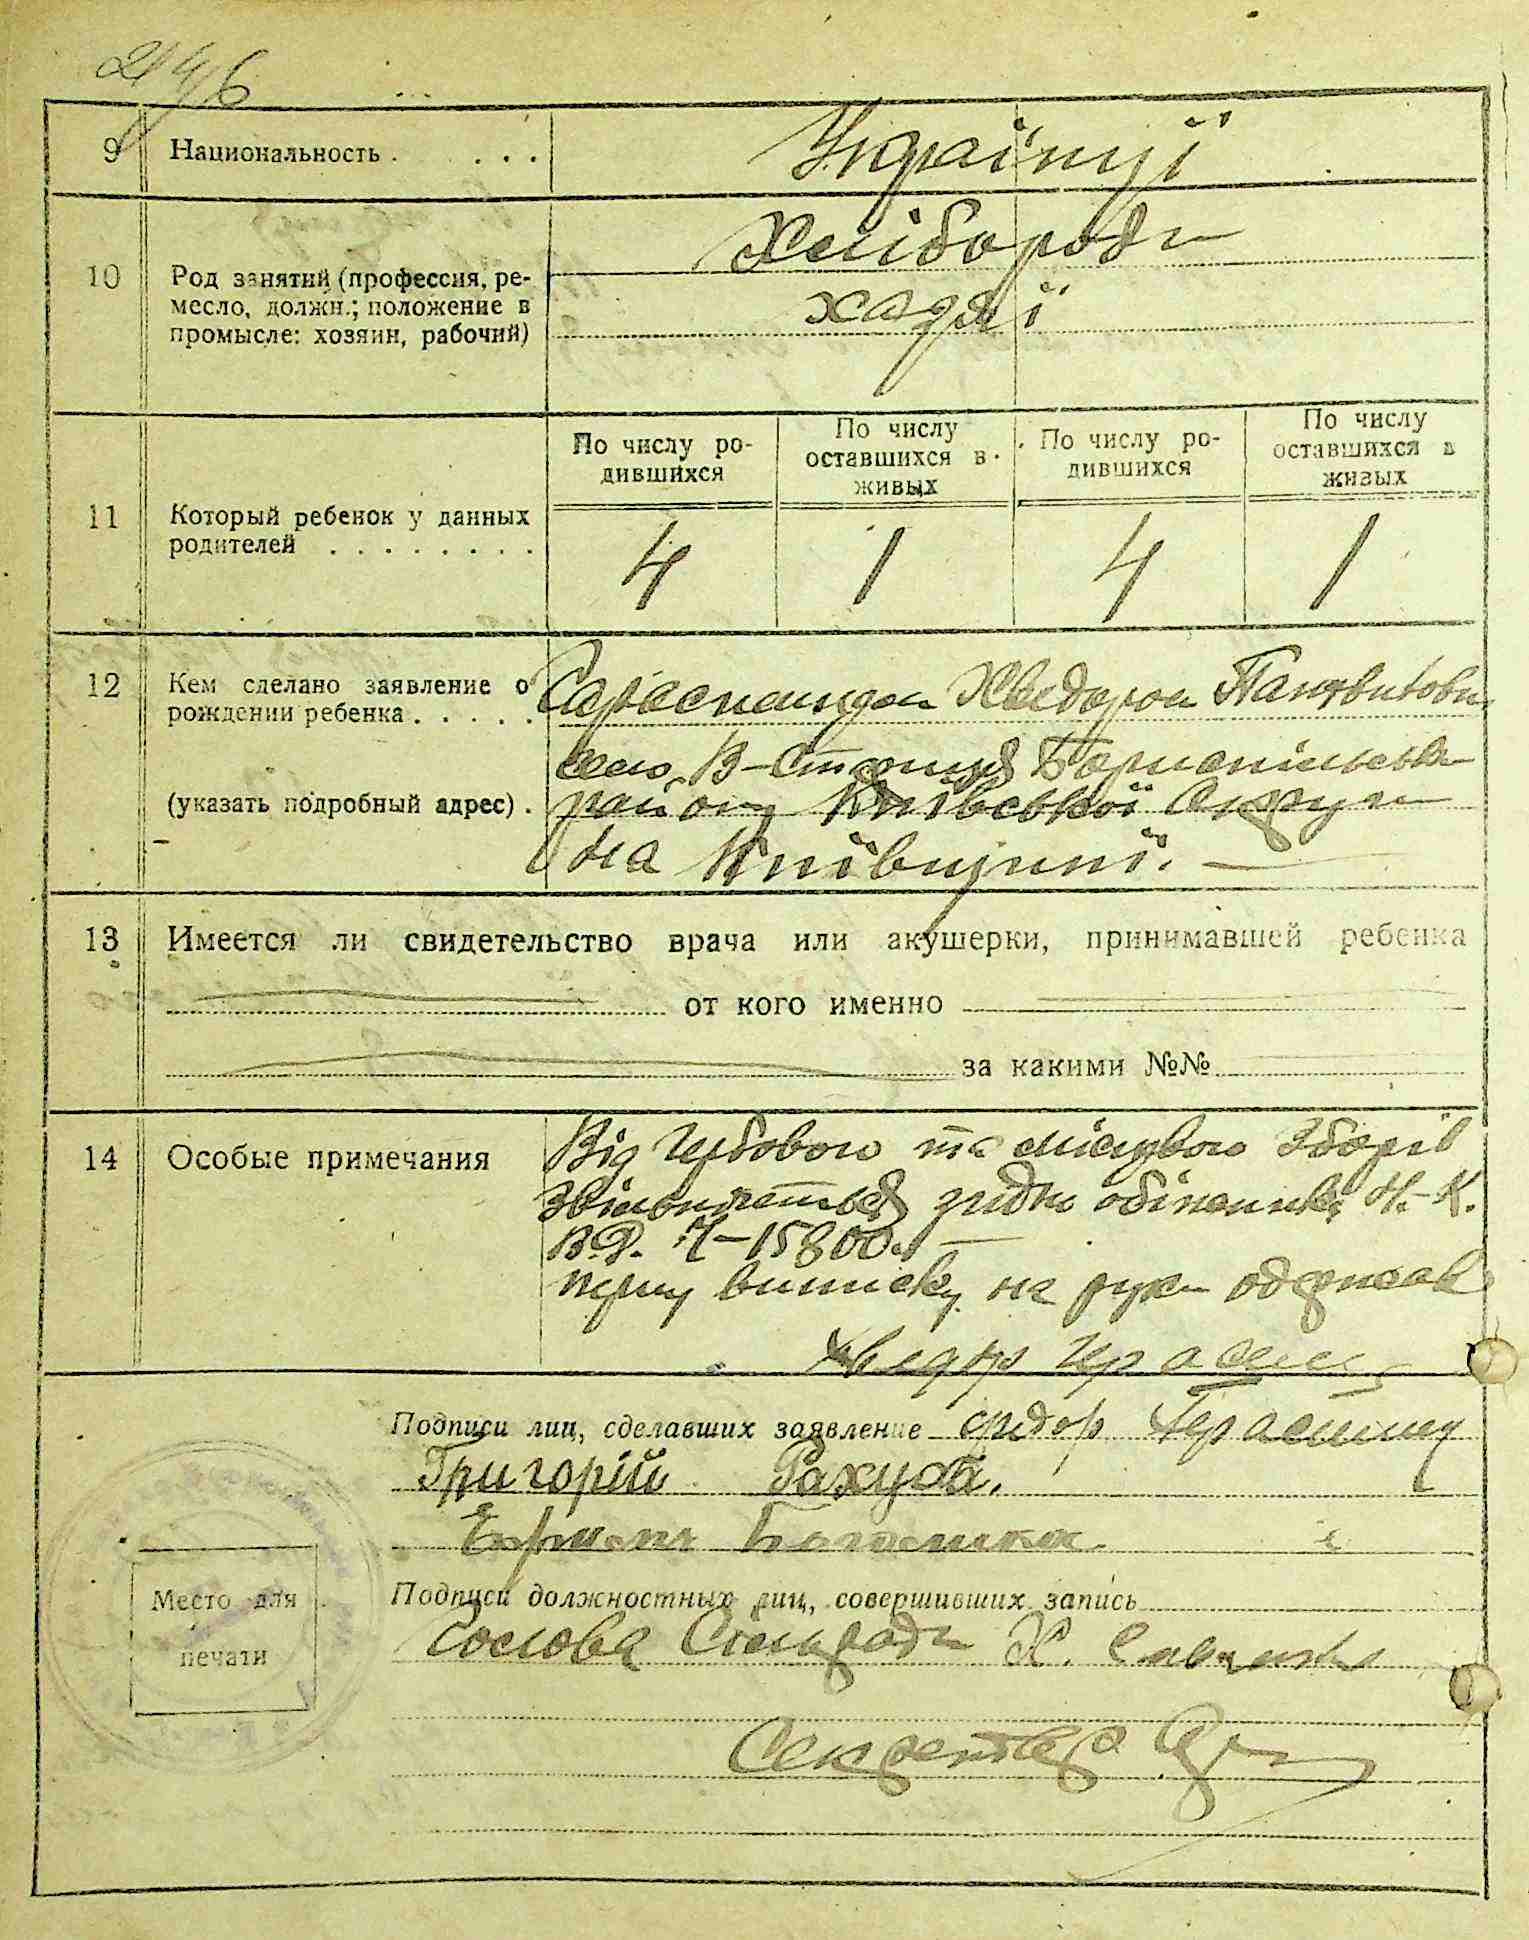 246
9 Национальность . . . . Українці
Хлібороби
10 Род занятий (профессия, ре-
месло, должн.; положение в
промысле: хозяин, рабочий)
хазяї
По числу ро-
дившихся
По числу
оставшихся в
живых
По числу ро-
дившихся
По числу
оставшихся в
живых
11 Который ребенок у данных
родителей . . . . . . . .
4 1 4 1
12 Кем сделано заявление о
рождении ребенка . . . . .
Хведором
село В-Стариця Бориспільськ
(указать подробный адрес) . району Київської Округи
на Київщині.
13 Имеется ли свидетельство врача или акушерки, принимавшей ребенка
от кого именно
за какими №№
14 Особые примечания
Від Гербового та місцевого зборів
звільняється згідно обіжника Н.-К.
В.Д. Ч-15800. —
першу виписку на руки одержав
Хведор Герасим
Подписи лиц, сделавших заявление Федор
Григорій Рахуба.
Подписи должностных лиц, совершивших запись
Голова Сільради Х.
Секретар
Место для
печати